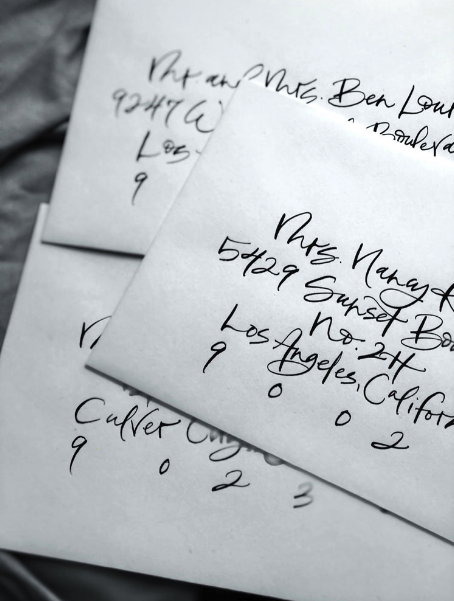 Mr. and Mrs. Ben Lou
9247 W Bouleva
Los
9
Mrs. Nancy K
5429 Sunset Bou
No. 2H
Los Angeles, Califor
9 0 0 2
Culver City
9 0 2 3